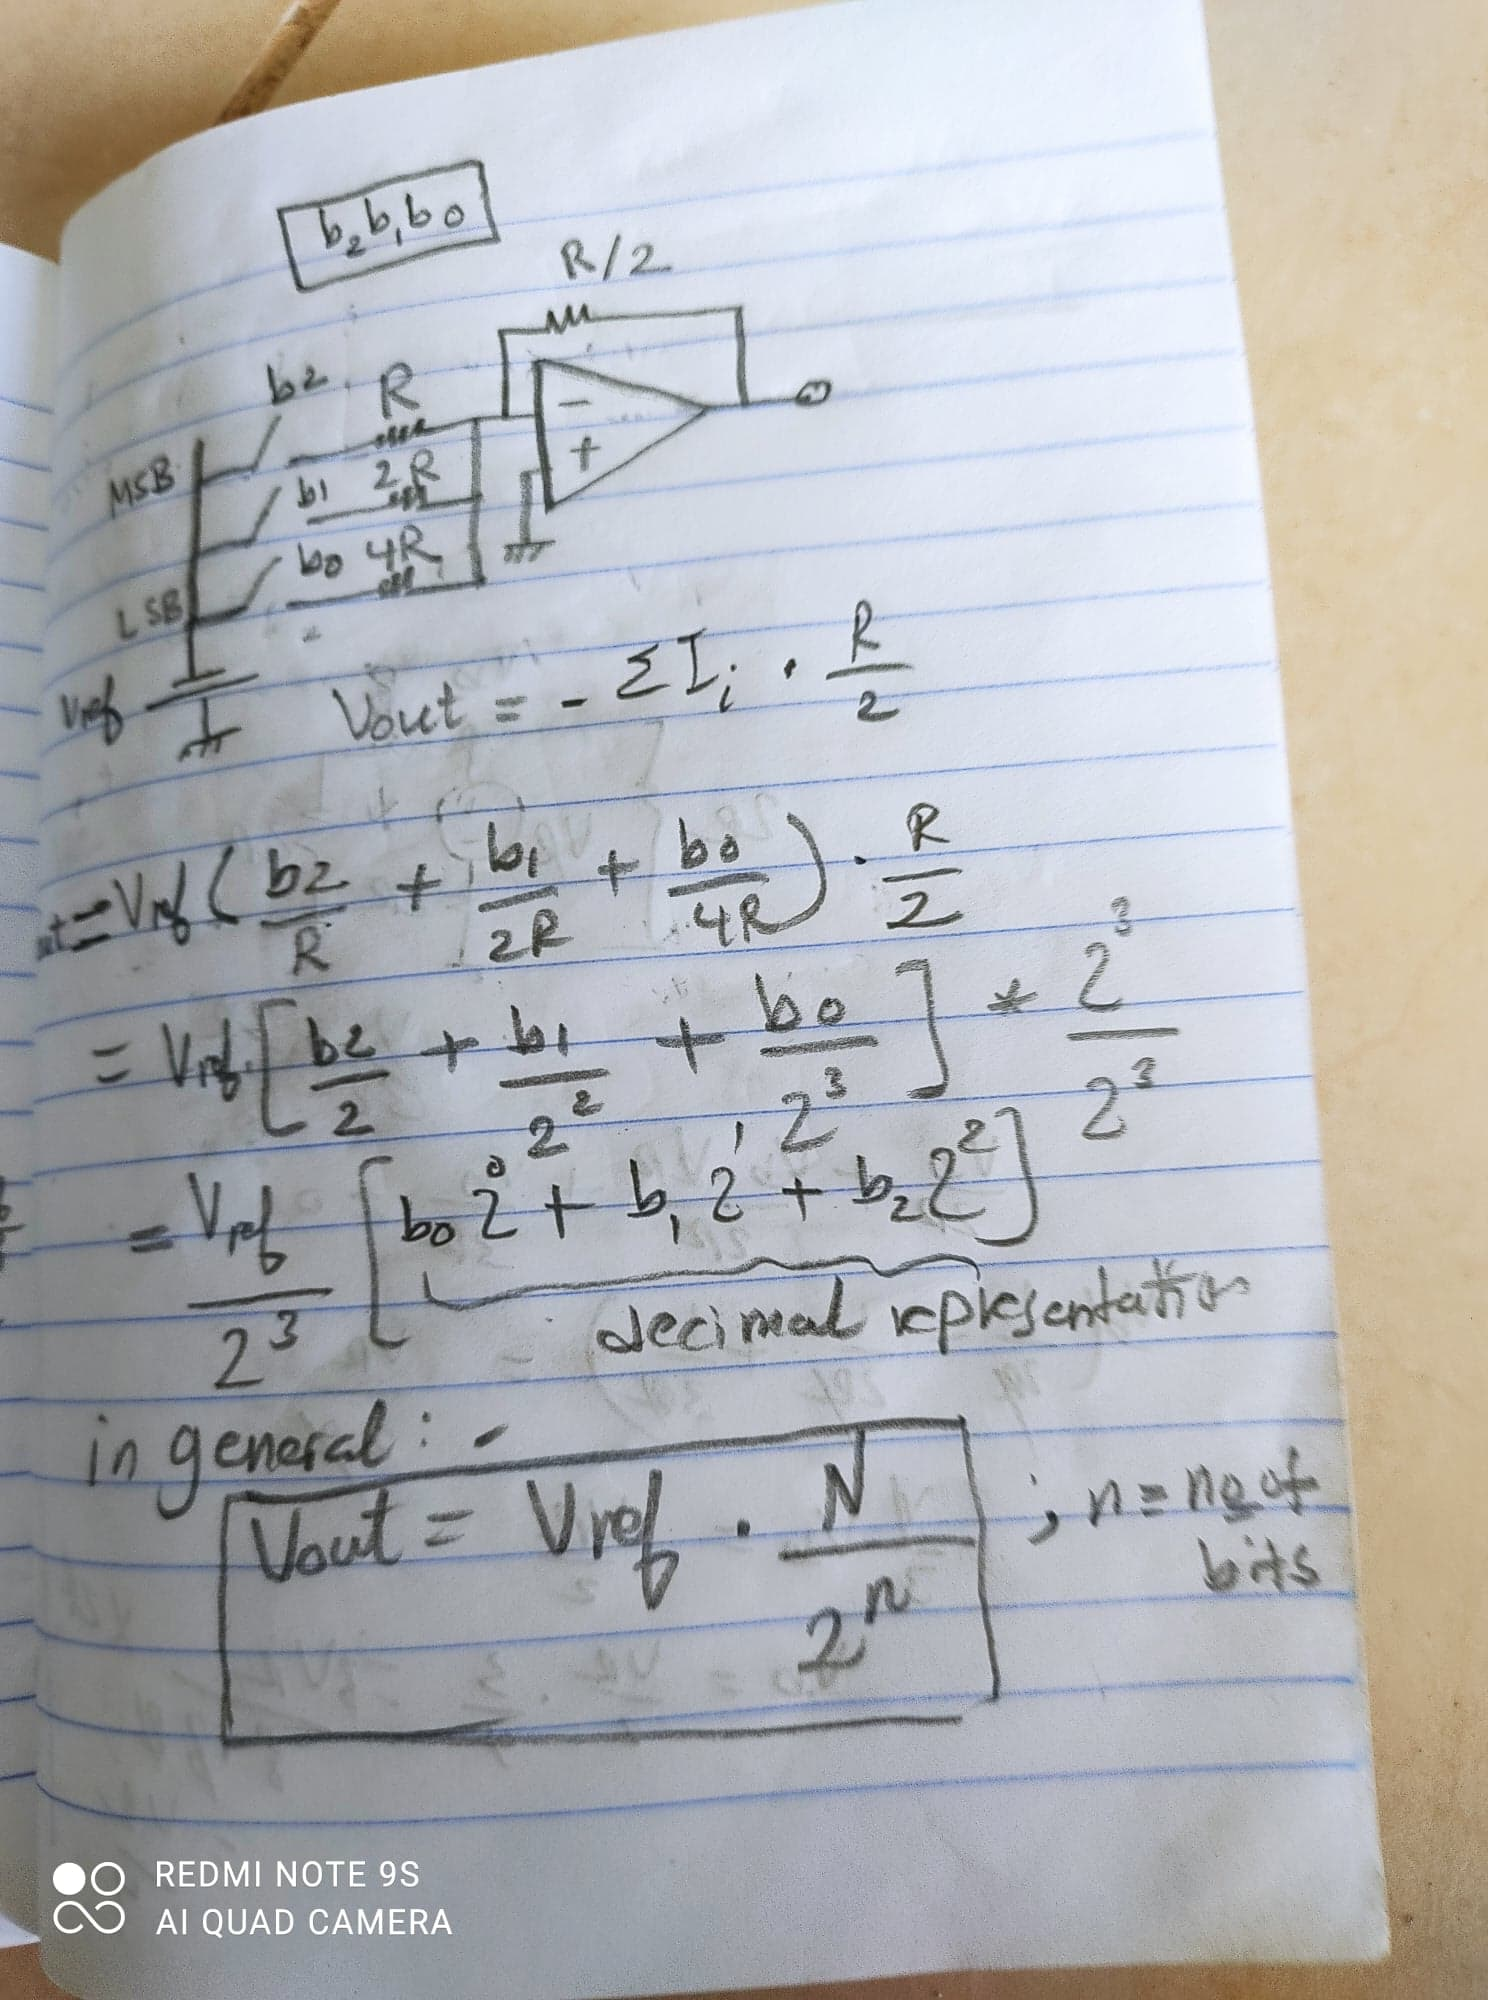 b₂b₁b₀
R/2
b2 R
MSB
−
b1 2R
+
b0 4R
LSB
Vref
Vout = - ΣIᵢ . R/2
= Vref ( b2/R + b1/2R + b0/4R ) . R/2
= Vref. [ b2/2 + b1/2² + b0/2³ ] * 2³/2³
= Vref/2³ [ b₀ 2⁰ + b₁ 2¹ + b₂ 2² ]
decimal representation
in general : -
Vout = Vref . N/2ⁿ ; n = no of
bits
REDMI NOTE 9S
AI QUAD CAMERA